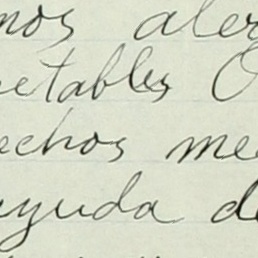 mos aler
etables O
echos me
ayuda de